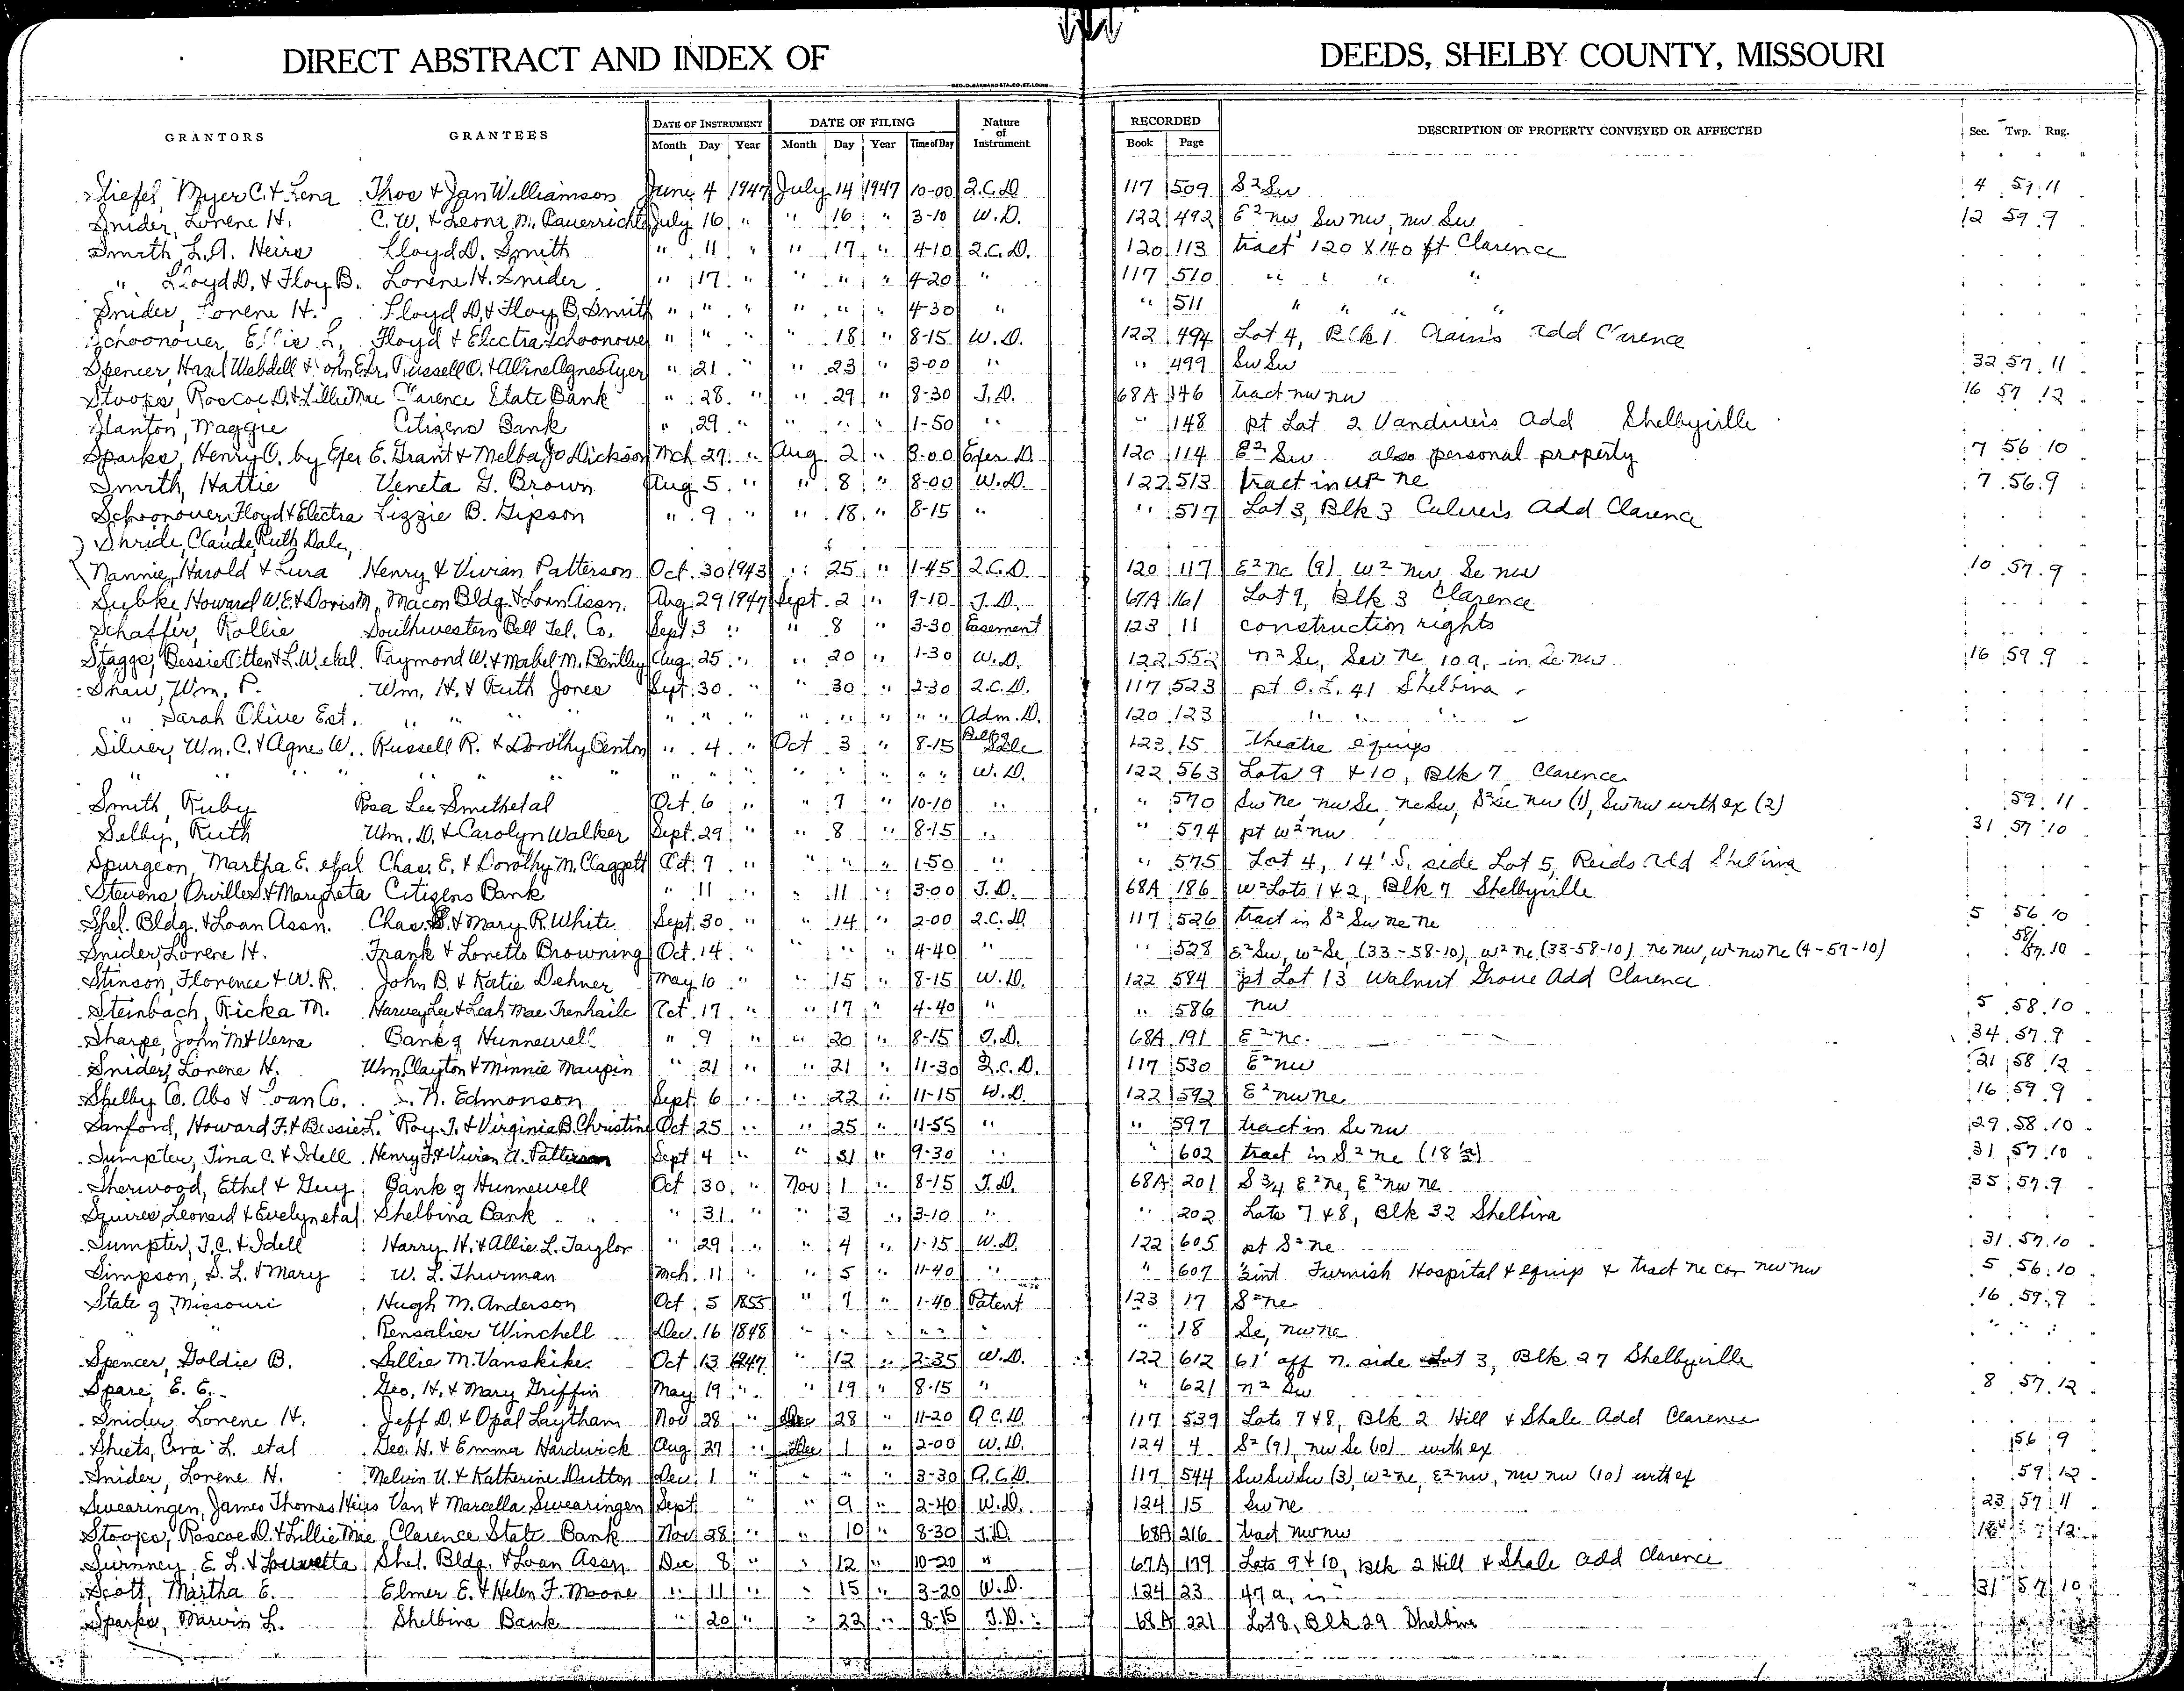 DIRECT ABSTRACT AND INDEX OF DEEDS, SHELBY COUNTY, MISSOURI
GEO. D. BARNARD STA. CO. ST. LOUIS
GRANTORS GRANTEES DATE OF INSTRUMENT DATE OF FILING Nature of Instrument RECORDED DESCRIPTION OF PROPERTY CONVEYED OR AFFECTED Sec. Twp. Rng.
Month Day Year Month Day Year Time of Day Book Page
Stiefel, Myer C. & Lena Thos & Jan Williamson June 4 1947 July 14 1947 10-00 Q.C.D. 117 509 S² Sw 4 57 11
Snider, Lorene H. C. W. & Leona M. July 16 " " 16 " 3-10 W.D. 122 492 E² nw, Sw nw, nw Sw 12 59 9
Smith, L.A. Heirs Lloyd D. Smith " 11 " " 17 " 4-10 Q.C.D. 120 113 tract 120 X 140 ft Clarence
" Lloyd D. & Floy B. Lorene H. Snider " 17 " " " " 4-20 " 117 510 " " " "
Snider, Lorene H. Lloyd D. & Floy B. Smith " " " " " " 4-30 " " 511 " " " "
Schoonover, Effie L. Floyd & Electra Schoonover " " " " 18 " 8-15 W.D. 122 494 Lot 4, Blk 1 Crain's Add Clarence
Spencer, Hazel Webdell & John E. Jr. Russell O. & Aline Agnes Ayer " 21 " " 23 " 3-00 " " 499 Sw Sw 32 57 11
Stoops, Roscoe D. & Lillie Mae Clarence State Bank " 28 " " 29 " 8-30 T.D. 68A 146 tract nw nw 16 57 12
Stanton, Maggie Citizens Bank " 29 " " " " 1-50 " " 148 pt Lot 2 Add Shelbyville
Sparks, Henry C. by Exer E. Grant & Melba Jo Dickson Mch 27 " Aug 2 " 8-00 Exer D. 120 114 E² Sw also personal property 7 56 10
Smith, Hattie Veneta G. Brown Aug 5 " " 8 " 8-00 W.D. 122 513 tract in W² ne 7 56 9
Schoonover, Floyd & Electra Lizzie B. Gipson " 9 " " 18 " 8-15 " " 517 Lot 3, Blk 3 Culver's Add Clarence
Shride, Claude, Ruth Dale,
Nannie, Harold & Lura Henry & Vivian Patterson Oct. 30 1943 " 25 " 1-45 Q.C.D. 120 117 E² ne (9), W² nw, Se nw 10 57 9
Howard W.E. & Doris M. Macon Bldg. & Loan Assn. Aug 29 1947 Sept. 2 " 9-10 T.D. 67A 161 Lot 9, Blk 3 Clarence
Schaffer, Rollie Southwestern Bell Tel. Co. Sept 3 " " 8 " 3-30 Easement 123 11 construction rights
Staggs, Bessie Otten & L.W. etal Raymond W. & Mabel M. Bentley Aug. 25 " " 20 " 1-30 W.D. 122 552 n² Se, Sw ne, 10 a. in Se nw 16 59 9
Shaw, Wm. P. Wm. H. & Ruth Jones Sept. 30 " " 30 " 2-30 Q.C.D. 117 523 pt O.L. 41 Shelbina
" Sarah Olive Est. " " " " " " " " " " " Adm. D. 120 123 " " "
Silver, Wm. C. & Agnes W. Russell R. & Dorothy Benton " 4 " Oct 3 " 8-15 Bill of Sale 123 15 Theatre equip
" " " " " " " " " " " " " W.D. 122 563 Lots 9 & 10, Blk 7 Clarence
Smith, Ruby Rosa Lee Smith etal Oct. 6 " " 7 " 10-10 " " 570 Sw ne, nw Se, ne Sw, S² Se nw (1), Sw nw with ex (2) 59 11
Selby, Ruth Wm. D. & Carolyn Walker Sept. 29 " " 8 " 8-15 " " 574 pt W² nw 31 57 10
Spurgeon, Martha E. etal Chas. E. & Dorothy M. Claggett Oct. 7 " " " " 1-50 " " 575 Lot 4, 14' S. side Lot 5, Reids Add Shelbina
Stevens Orville S. & Mary Leta Citizens Bank " 11 " " 11 " 3-00 T.D. 68A 186 W² Lots 1 & 2, Blk 7 Shelbyville
Shel. Bldg. & Loan Assn. Chas. S. & Mary R. White Sept. 30 " " 14 " 2-00 Q.C.D. 117 526 tract in S² Sw ne ne 5 56 10
Snider, Lorene H. Frank & Loretto Browning Oct. 14 " " " " 4-40 " " 528 E² Sw, W² Se (33-58-10), W² ne (33-58-10) ne nw, W² nw ne (4-57-10) 58/57 10
Stinson, Florence & W. R. John B. & Katie Dehner May 10 " " 15 " 8-15 W.D. 122 584 pt Lot 13 Walnut Grove Add Clarence
Steinbach, Ricka M. Harvey Lee & Leah Mae Trenhaile Oct. 17 " " 17 " 4-40 " " 586 nw 5 58 10
Sharpe, John M & Verna Bank of Hunnewell " 9 " " 20 " 8-15 T.D. 68A 191 E² ne 34 57 9
Snider, Lorene H. Wm. Clayton & Minnie Maupin " 21 " " 21 " 11-30 Q.C.D. 117 530 E² nw 21 58 12
Shelby Co. Abs & Loan Co. N. Edmonson Sept 6 " " 22 " 11-15 W.D. 122 592 E² nw ne 16 59 9
Sanford, Howard F. & Bessie L. Roy J. & Virginia B. Christine Oct 25 " " 25 " 11-55 " " 597 tract in Se nw 29 58 10
Sumpter, Tina C. & Idell Henry F. & Vivian A. Patterson Sept 4 " " 31 " 9-30 " " 602 tract in S² ne (18½) 31 57 10
Sherwood, Ethel & Guy Bank of Hunnewell Oct 30 " Nov 1 " 8-15 T.D. 68A 201 S 3/4 E² ne, E² nw ne 35 57 9
Squires, Leonard & Evelyn etal Shelbina Bank " 31 " " 3 " 3-10 " " 202 Lots 7 & 8, Blk 32 Shelbina
Sumpter, T.C. & Idell Harry H. & Allie L. Taylor " 29 " " 4 " 1-15 W.D. 122 605 pt S² ne 31 57 10
Simpson, S. L. & Mary W. L. Thurman Mch. 11 " " 5 " 11-40 " " 607 Furnish Hospital & equip & tract ne cor nw nw 5 56 10
State of Missouri Hugh M. Anderson Oct 5 1855 " 7 " 1-40 Patent 123 17 S² ne 16 59 9
" " Rensalier Winchell Dec. 16 1848 " " " " " " 18 Se, nw ne " " "
Spencer, Goldie B. Sallie M. Vanskike Oct 13 1947 " 12 " 2-35 W.D. 122 612 61' off n. side Lot 3, Blk 27 Shelbyville
Spare, E. E. Geo. H. & Mary Griffin May 19 " " 19 " 8-15 " " 621 n² Sw 8 57 12
Snider Lorene H. Jeff D. & Opal Laytham Nov 28 " 28 " 11-20 Q.C.D. 117 539 Lots 7 & 8, Blk 2 Hill & Shale Add Clarence
Sheets, Cora L. etal Geo. H. & Emma Hardwick Aug 27 " Dec 1 " 2-00 W.D. 124 4 S² (9), nw Se (10) with ex 56 9
Snider, Lorene H. Melvin U. & Katherine Dutton Dec 1 " " " " 3-30 Q.C.D. 117 544 Sw Sw Sw (3), W² ne, E² nw, nw nw (10) with ex 59 12
Swearingen, James Thomas Heirs Van & Marcella Swearingen Sept " " 9 " 2-40 W.D. 124 15 Sw ne 23 57 11
Stoops, Roscoe D. & Lillie Mae Clarence State Bank Nov 28 " " 10 " 8-30 T.D. 68A 216 tract nw nw 12
E. L. & Louvetta Shel. Bldg. & Loan Assn Dec 8 " " 12 " 10-20 " 67A 179 Lots 9 & 10, Blk 2 Hill & Shale Add Clarence
Scott, Martha E. Elmer E. & Helen F. Moore " 11 " " 15 " 3-20 W.D. 124 23 47 a. in 31 57 10
Sparks, Marvin L. Shelbina Bank " 20 " " 22 " 8-15 T.D. 68A 221 Lot 8, Blk 29 Shelbina